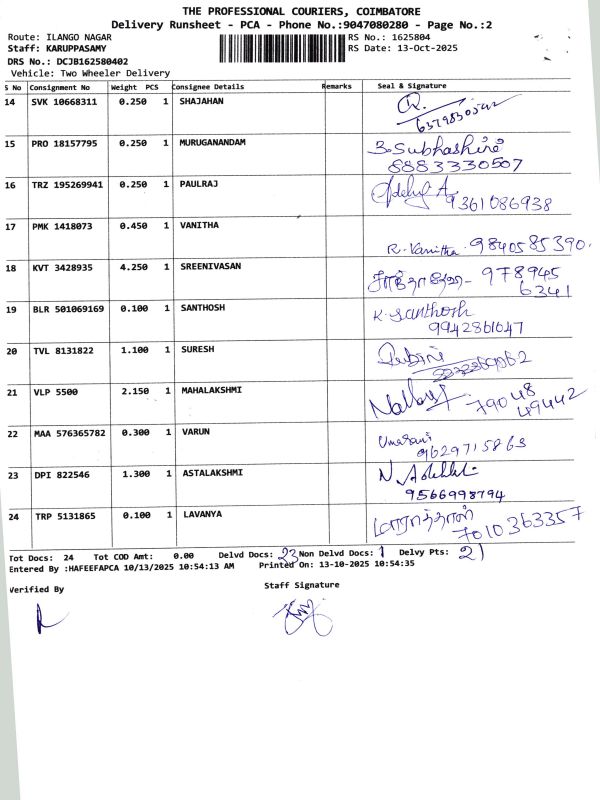 THE PROFESSIONAL COURIERS, COIMBATORE
Delivery Runsheet - PCA - Phone No.:9047080280 - Page No.:2
Route: ILANGO NAGAR RS No.: 1625804
Staff: KARUPPASAMY RS Date: 13-Oct-2025
DRS No.: DCJB162580402
Vehicle: Two Wheeler Delivery
S No Consignment No Weight PCS Consignee Details Remarks Seal & Signature
14 SVK 10668311 0.250 1 SHAJAHAN
15 PRO 18157795 0.250 1 MURUGANANDAM B. Subhashire
8883330507
16 TRZ 195269941 0.250 1 PAULRAJ
9361086938
17 PMK 1418073 0.450 1 VANITHA
R. Vanitha 9840585390.
18 KVT 3428935 4.250 1 SREENIVASAN 978945
6341
19 BLR 501069169 0.100 1 SANTHOSH K. Santhosh
9942861047
20 TVL 8131822 1.100 1 SURESH
21 VLP 5500 2.150 1 MAHALAKSHMI 79048
49442
22 MAA 576365782 0.300 1 VARUN Umarani
9629715863
23 DPI 822546 1.300 1 ASTALAKSHMI
9566998794
24 TRP 5131865 0.100 1 LAVANYA மாராத்தாள்
7010363357
Tot Docs: 24 Tot COD Amt: 0.00 Delvd Docs: 23 Non Delvd Docs: 1 Delvy Pts: 21
Entered By :HAFEEFAPCA 10/13/2025 10:54:13 AM Printed On: 13-10-2025 10:54:35
Verified By Staff Signature